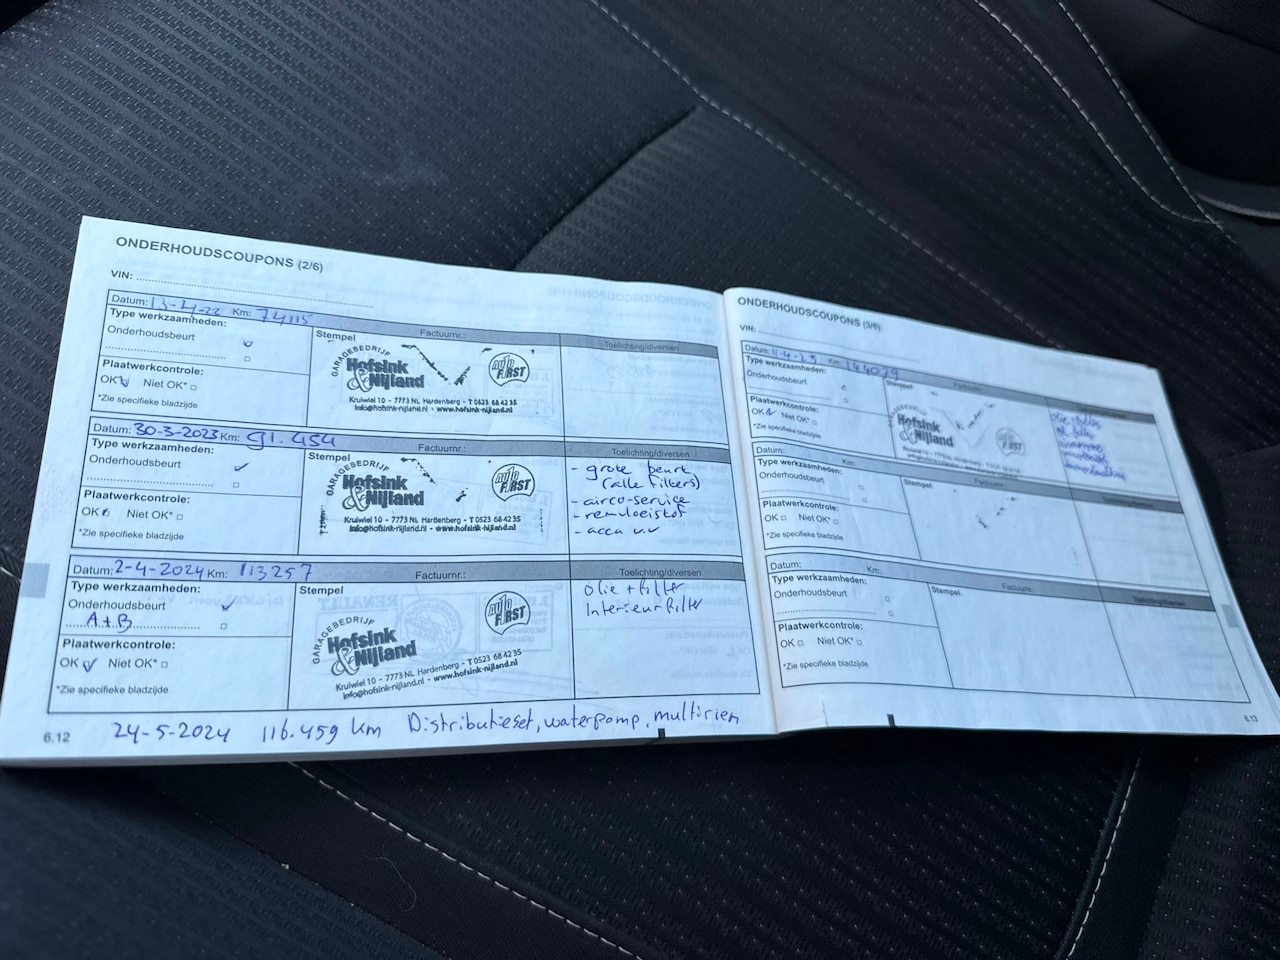 ONDERHOUDSCOUPONS (2/6)
VIN:
Datum: 13-4-22 Km: 74115
Type werkzaamheden:
Onderhoudsbeurt
Plaatwerkcontrole:
OK Niet OK*
*Zie specifieke bladzijde
Stempel Factuurnr.:
GARAGEBEDRIJF
Hofsink
& Nijland
auto FIRST
Kruiwiel 10 - 7773 NL Hardenberg - T 0523 68 42 35
info@hofsink-nijland.nl - www.hofsink-nijland.nl
Toelichting/diversen
Datum: 30-3-2023 Km: 91.454
Type werkzaamheden:
Onderhoudsbeurt
Plaatwerkcontrole:
OK Niet OK*
*Zie specifieke bladzijde
Stempel Factuurnr.:
GARAGEBEDRIJF
Hofsink
& Nijland
auto FIRST
Kruiwiel 10 - 7773 NL Hardenberg - T 0523 68 42 35
info@hofsink-nijland.nl - www.hofsink-nijland.nl
Toelichting/diversen
- grote beurt
(alle filters)
- airco-service
- remvloeistof
- accu v.v
Datum: 2-4-2024 Km: 113257
Type werkzaamheden:
Onderhoudsbeurt
A+B
Plaatwerkcontrole:
OK Niet OK*
*Zie specifieke bladzijde
Stempel Factuurnr.:
GARAGEBEDRIJF
Hofsink
& Nijland
auto FIRST
Kruiwiel 10 - 7773 NL Hardenberg - T 0523 68 42 35
info@hofsink-nijland.nl - www.hofsink-nijland.nl
Toelichting/diversen
olie + filter
Interieurfilter
6.12 24-5-2024 116.459 km Distributieset, waterpomp, multiriem
ONDERHOUDSCOUPONS (3/6)
VIN:
Datum: Km: 144079
Type werkzaamheden:
Onderhoudsbeurt
Plaatwerkcontrole:
OK Niet OK*
*Zie specifieke bladzijde
Stempel Factuurnr.:
GARAGEBEDRIJF
Hofsink
& Nijland
FIRST
Datum: Km:
Type werkzaamheden:
Onderhoudsbeurt
Plaatwerkcontrole:
OK Niet OK*
*Zie specifieke bladzijde
Stempel Factuurnr.:
Datum: Km:
Type werkzaamheden:
Onderhoudsbeurt
Plaatwerkcontrole:
OK Niet OK*
*Zie specifieke bladzijde
Stempel Factuurnr.:
Toelichting/diversen
6.13